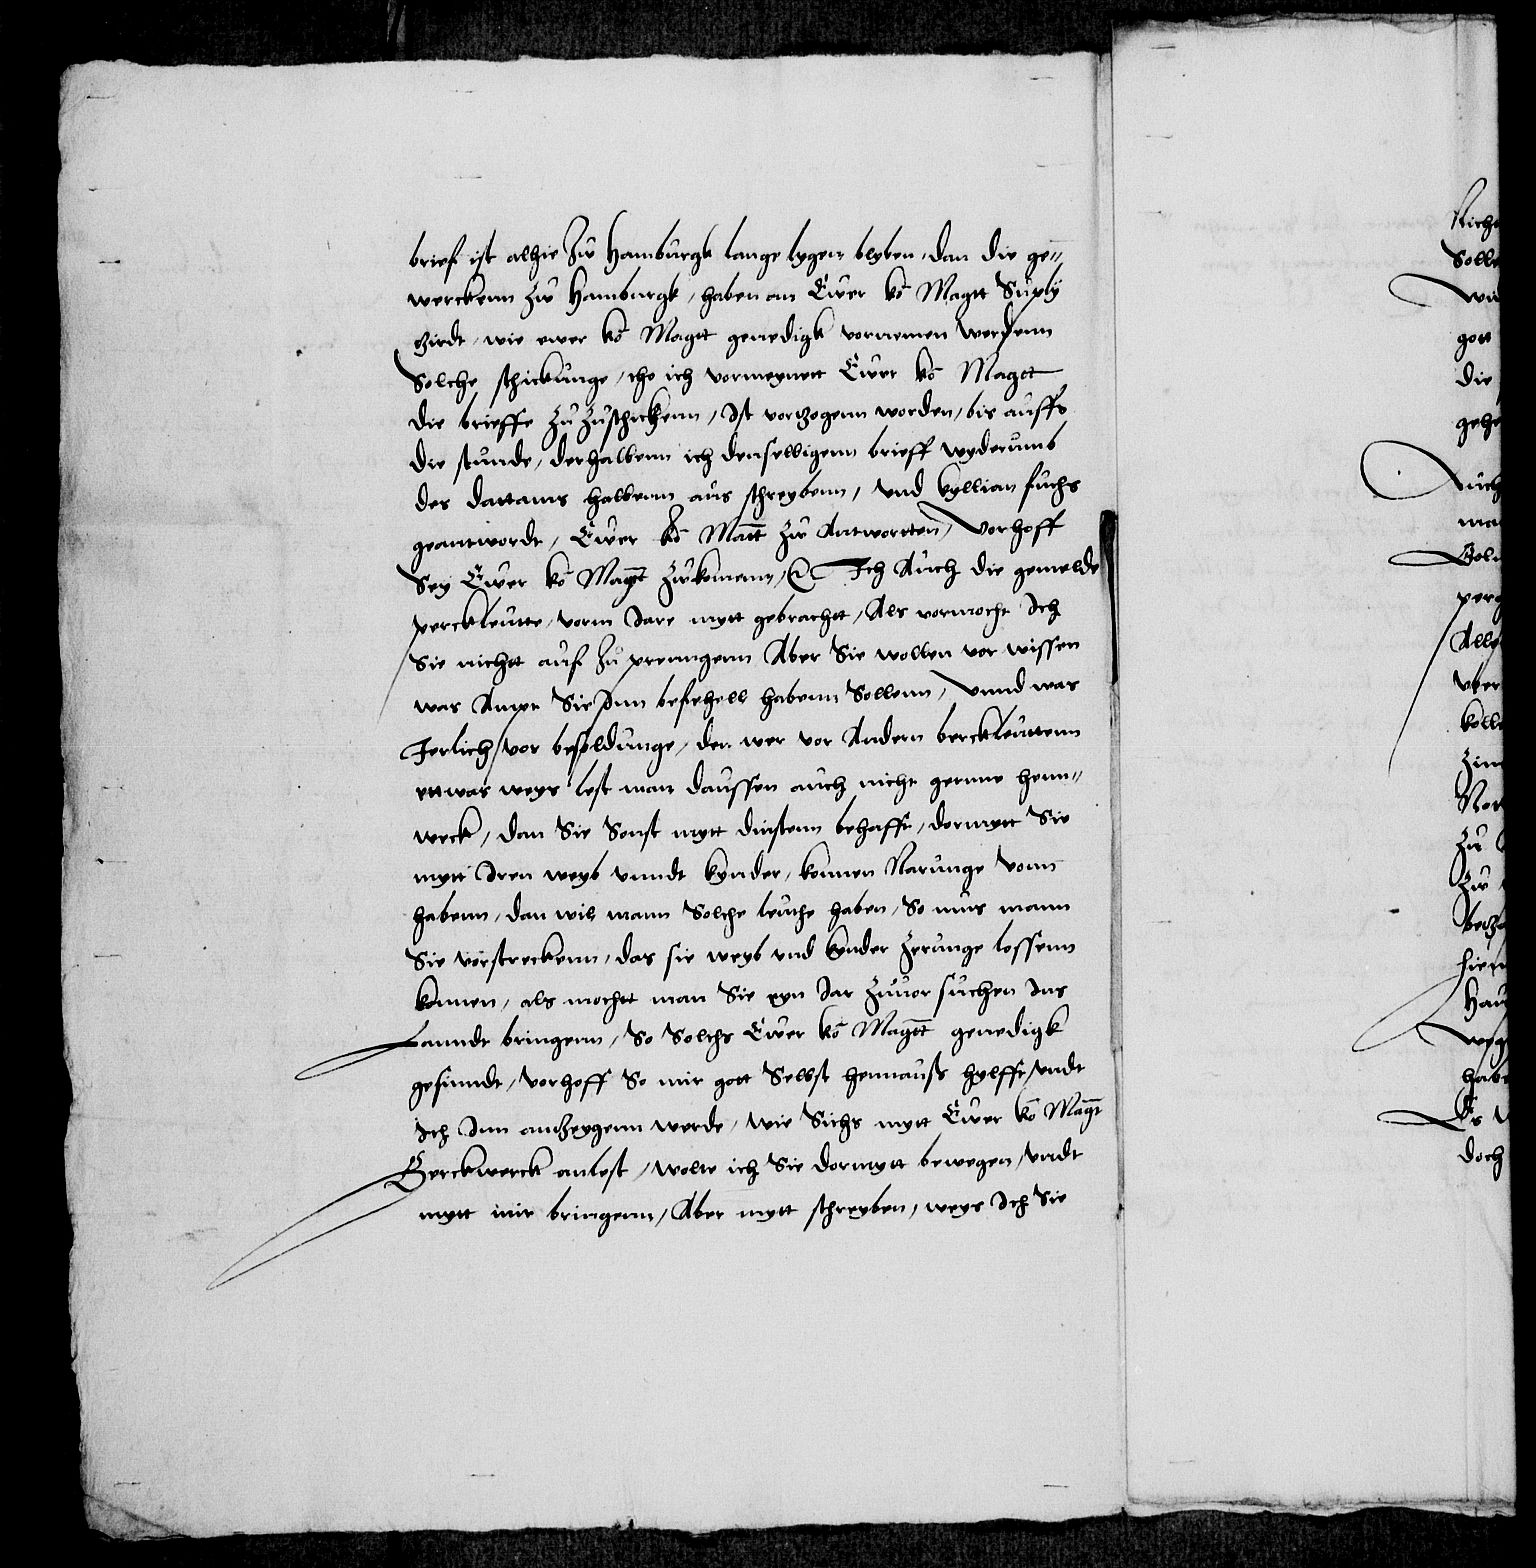 brief ist alhie Zw Hamburgk lange lygen blyben, dan die ge=
werckenn Zw Hamburgk, haben an Ewer ko Magtt Suply
zirdt, wie ewer ko Magtt genedigk vornemen werdenn
Solche schickunge, ehe ich vormeynett Ewer ko Magtt
die brieffe Zu Zuschickenn, Ist vorzogenn worden, bis auff
die stunde, derhalbenn ich denselligenn brieff wyderumb
des dattums halbenn aus schreybenn, vnd kyllian fuchs
geantwordt, Ewer ko Matt Zw Antwortten, Vorhoff
Sey Ewer ko Magtt Zwkomenn, Ich Auch die gemelde
perckleutte, vorm Jare mytt gebrachtt, Als vormocht Ich
Sie nichtt auf Zu prenngenn Aber Sie wollen vor wissen
was Ampt Sie Inn befehell habenn Sollenn, Vnnd was
Jerlich, vor besoldunge, den wer vor Andern berckleuttenn
ettwas weys lest man daussen auch nicht gernne henn=
weck, dan Sie Sonst mytt dinstenn behafft, dormytt Sie
mytt Iren weyb vnndt kynder, konnen Narunge vonn
habenn, dan wil mann Solche leuthe haben, So mus mann
Sie vorstreckenn, das sie weyb vnd kynder Zerunge lossenn
konnen, als mochtt man Sie eyn Jar Zuuor suchen Ins
Lanndt bringenn, So Solchs Ewer ko Magtt genedigk
gesinndt, vorhoff So mir gott Selbst hennauss hylfft, vndt
Ich Inn anzeygenn werde, wie Sichs mytt Ewer ko Magtt
Berckwerck anlest, wolte ich Sie dormytt bewegen, vndt
mytt mir bringenn, Aber mytt schreyben, weys Ich Sie